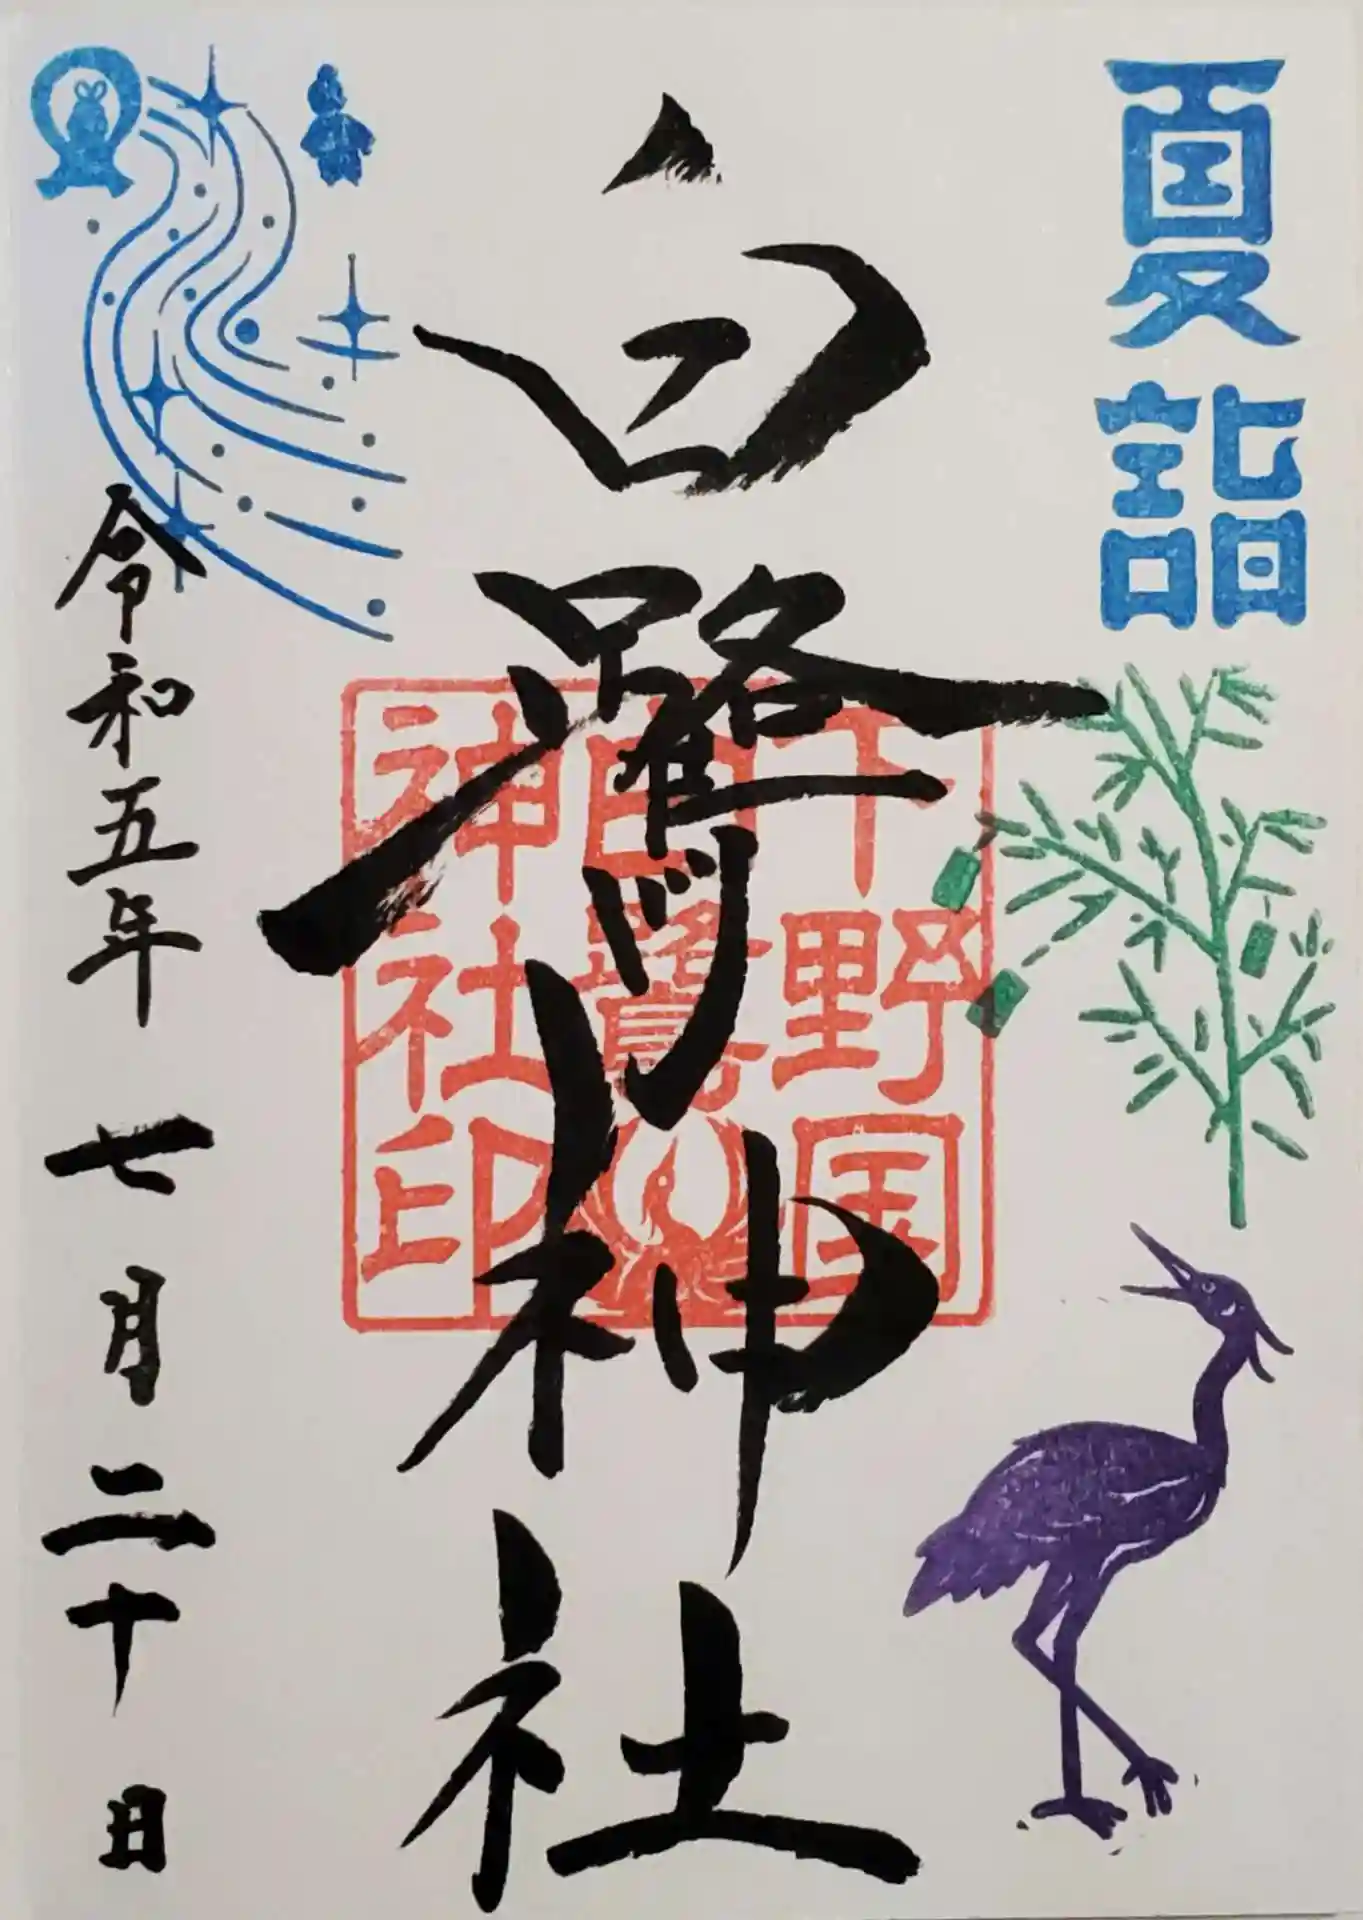 夏詣
白鷺神社
下野国
白鷺
神社印
令和五年 七月二十日